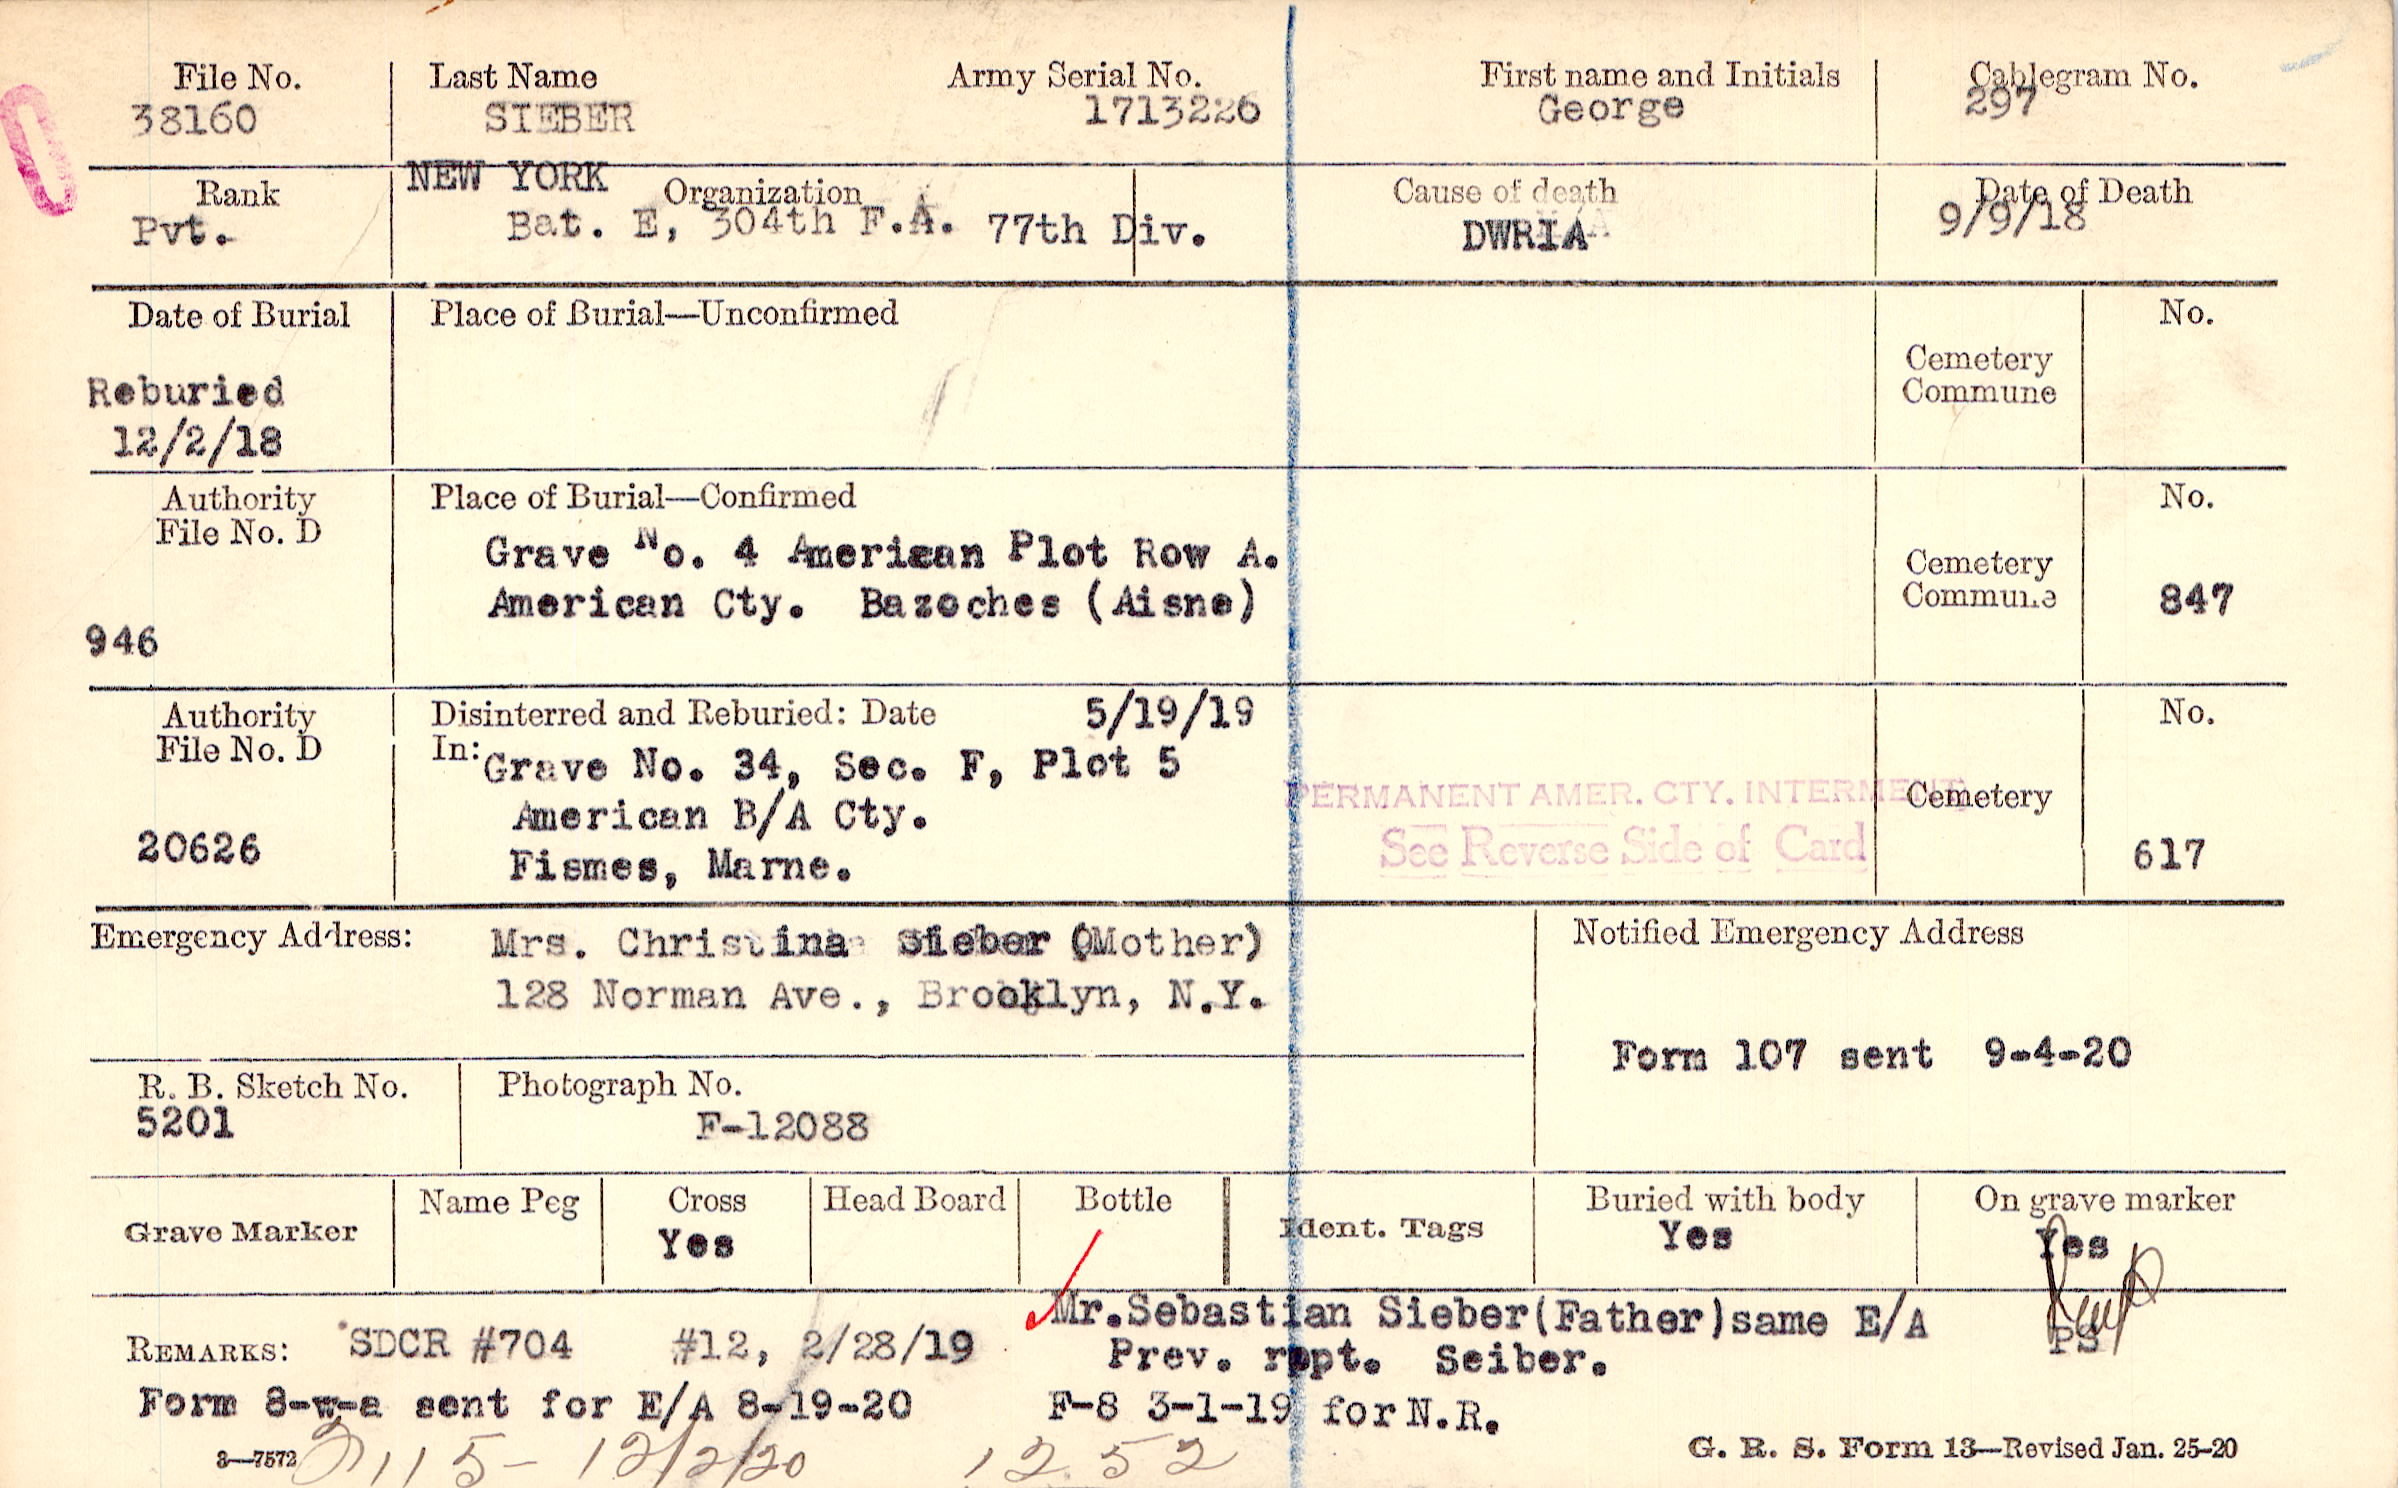 File No. Last Name Army Serial No. First name and Initials Cablegram No.
38160 SIEBER 1713226 George 297
NEW YORK
Rank Organization Cause of death Date of Death
Pvt. Bat. E, 304th F.A. 77th Div. DWRIA 9/9/18
Date of Burial Place of Burial—Unconfirmed No.
Cemetery
Commune
Reburied
12/2/18
Authority Place of Burial—Confirmed No.
File No. D
Grave No. 4 American Plot Row A. Cemetery
American Cty. Bazoches (Aisne) Commune 847
946
Authority Disinterred and Reburied: Date 5/19/19 No.
File No. D In: Grave No. 34, Sec. F, Plot 5
PERMANENT AMER. CTY. INTERMENT Cemetery
American B/A Cty.
20626 Fismes, Marne. See Reverse Side of Card 617
Emergency Address: Mrs. Christina Sieber (Mother) Notified Emergency Address
128 Norman Ave., Brooklyn, N.Y.
Form 107 sent 9-4-20
R. B. Sketch No. Photograph No.
5201 F-12088
Grave Marker Name Peg Cross Head Board Bottle Ident. Tags Buried with body On grave marker
Yes Yes Yes
Mr.Sebastian Sieber(Father)same E/A
REMARKS: SDCR #704 #12, 2/28/19 Prev. rppt. Seiber. PS
Form 8-w-a sent for E/A 8-19-20 F-8 3-1-19 for N.R.
3—7572 115- 12/2/20 1252 G. R. S. Form 13—Revised Jan. 25-20